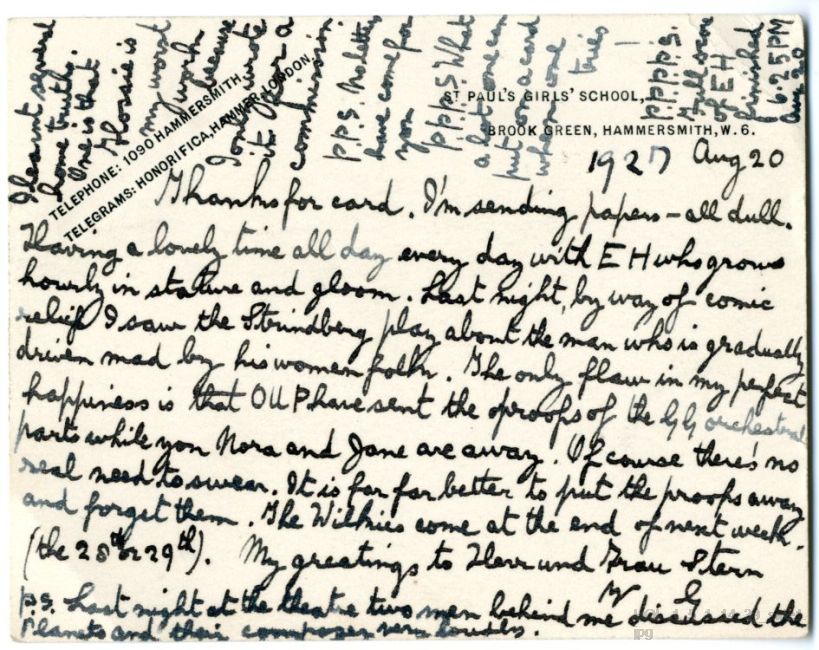 ST PAUL'S GIRLS' SCHOOL,
BROOK GREEN, HAMMERSMITH, W. 6.
TELEPHONE: 1090 HAMMERSMITH
TELEGRAMS: HONORIFICA, HAMMER, LONDON.
1927 Aug 20
Thanks for card. I'm sending papers – all dull.
Having a lovely time all day every day with E H who grows
hourly in stature and gloom. Last night, by way of comic
relief I saw the Strindberg play about the man who is gradually
driven mad by his women folk. The only flaw in my perfect
happiness is that OUP have sent the proofs of the GG orchestral
parts while you Nora and Jane are away. Of course there's no
real need to swear. It is far far better to put the proofs away
and forget them. The Wilkies come at the end of next week.
(the 28th or 29th). My greetings to Herr und Frau Stern
G
P.S. Last night at the theatre two men behind me discussed the
Planets and their composer very loudly.
I learnt several
home truths.
One is that
is
my worst
work
because
I only wrote
it for a
commission
P.P.S. No letters
have come for
you
P.P.P.S. What
a lot one can
put on a card
when one
tries –
P.P.P.P.S.
of E H
finished
6.25 PM
Aug 20
jpg